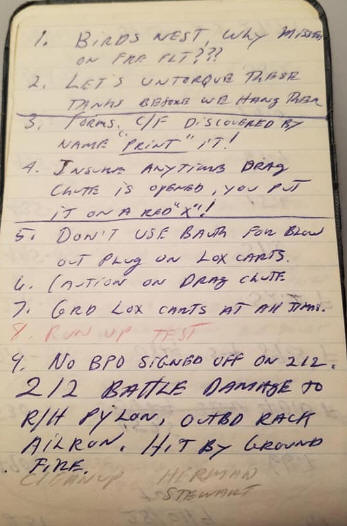 1. BIRDS NEST, WHY MISSED
ON FRA FLT???
2. LET'S UNTORQUE THESE
TANKS BEFORE WE HANG THEM
3. FORMS, C/F DISCOVERED BY
NAME "PRINT" IT!
4. INSURE ANYTIME DRAG
CHUTE IS OPENED, YOU PUT
IT ON A RED "X"!
5. DON'T USE FOR BLOW
OUT PLUG ON LOX CARTS.
6. CAUTION ON DRAG CHUTE
7. GRD LOX CARTS AT ALL TIMES.
8. RUN UP TEST
9. NO BPO SIGNED OFF ON 212.
212 BATTLE DAMAGE TO
R/H PYLON, OUTBD RACK
AILRON. HIT BY GROUND
FIRE.
CLEANUP HERMAN
STEWART